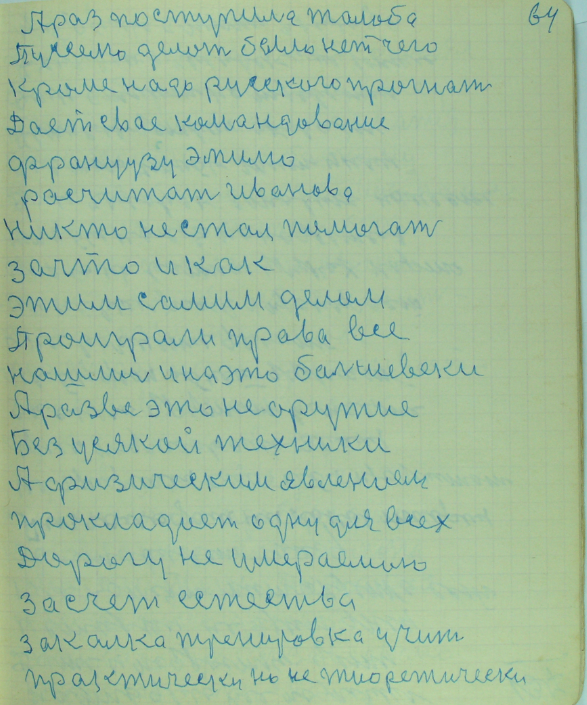 64
Араз поступила жалоба
Тусемо делат было нет чего
Кроме надо русского прогнат
Дает свае командование
французу Эмилю
расчитат иванова
никто не стал помогат
за что и как
этим самим делом
Проиграли права все
нашлис и на это балшевеки
А разве это не оружие
Без усякой техники
А физическим явлением
прокладует одну для всех
Дорогу не умераемою
за счет естества
закалка тренировка учит
практически но не тиоретически